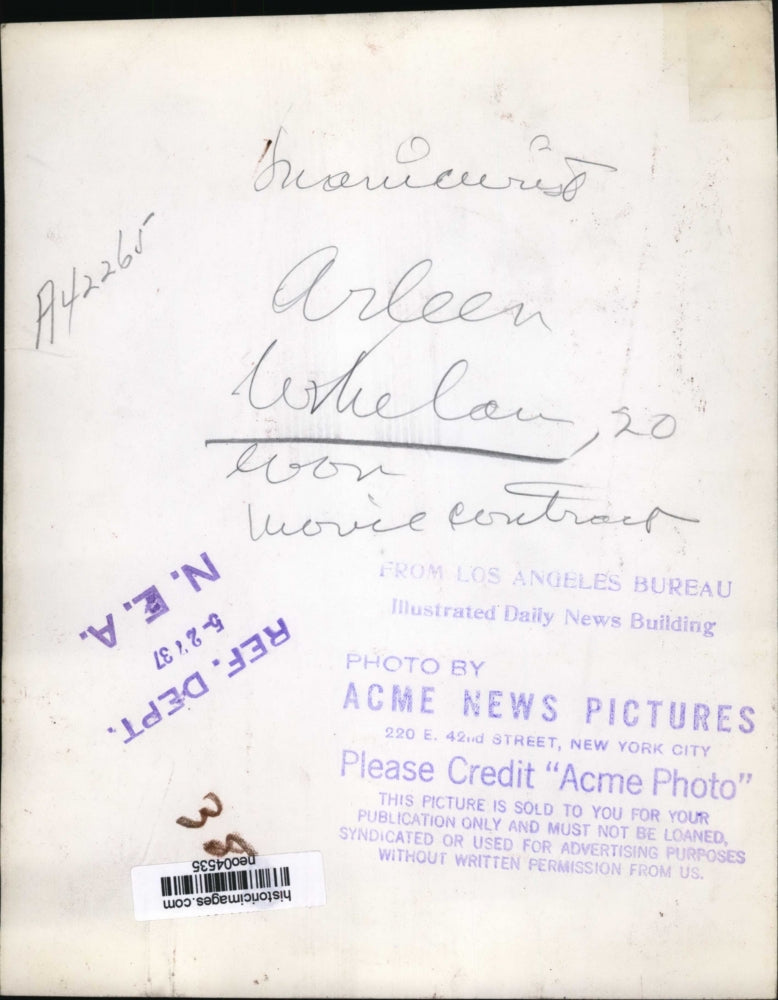 manicurist
A42265
Arleen
Whelan, 20
won
movie contract
FROM LOS ANGELES BUREAU
Illustrated Daily News Building
REF. DEPT.
5-27 37
N. E. A.
PHOTO BY
ACME NEWS PICTURES
220 E. 42nd STREET, NEW YORK CITY
Please Credit "Acme Photo"
THIS PICTURE IS SOLD TO YOU FOR YOUR
PUBLICATION ONLY AND MUST NOT BE LOANED,
SYNDICATED OR USED FOR ADVERTISING PURPOSES
WITHOUT WRITTEN PERMISSION FROM US.
historicimages.com
neo04535